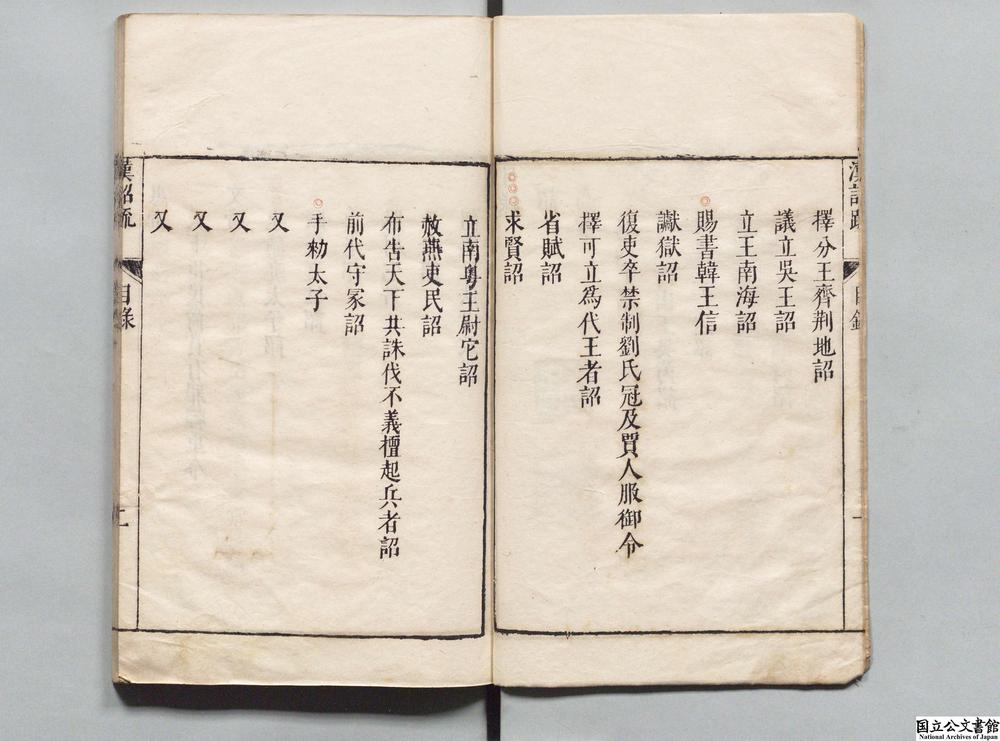 漢詔疏
目錄
擇分王齊荆地詔
議立吳王詔
立王南海詔
賜書韓王信
讞獄詔
復吏卒禁制劉氏冠及賈人服御令
擇可立爲代王者詔
省賦詔
求賢詔
立南粵王尉它詔
赦燕吏民詔
布告天下共誅伐不義檀起兵者詔
前代守冢詔
手勑太子
又
又
又
又
漢詔疏
目錄
二
国立公文書館
National Archives of Japan